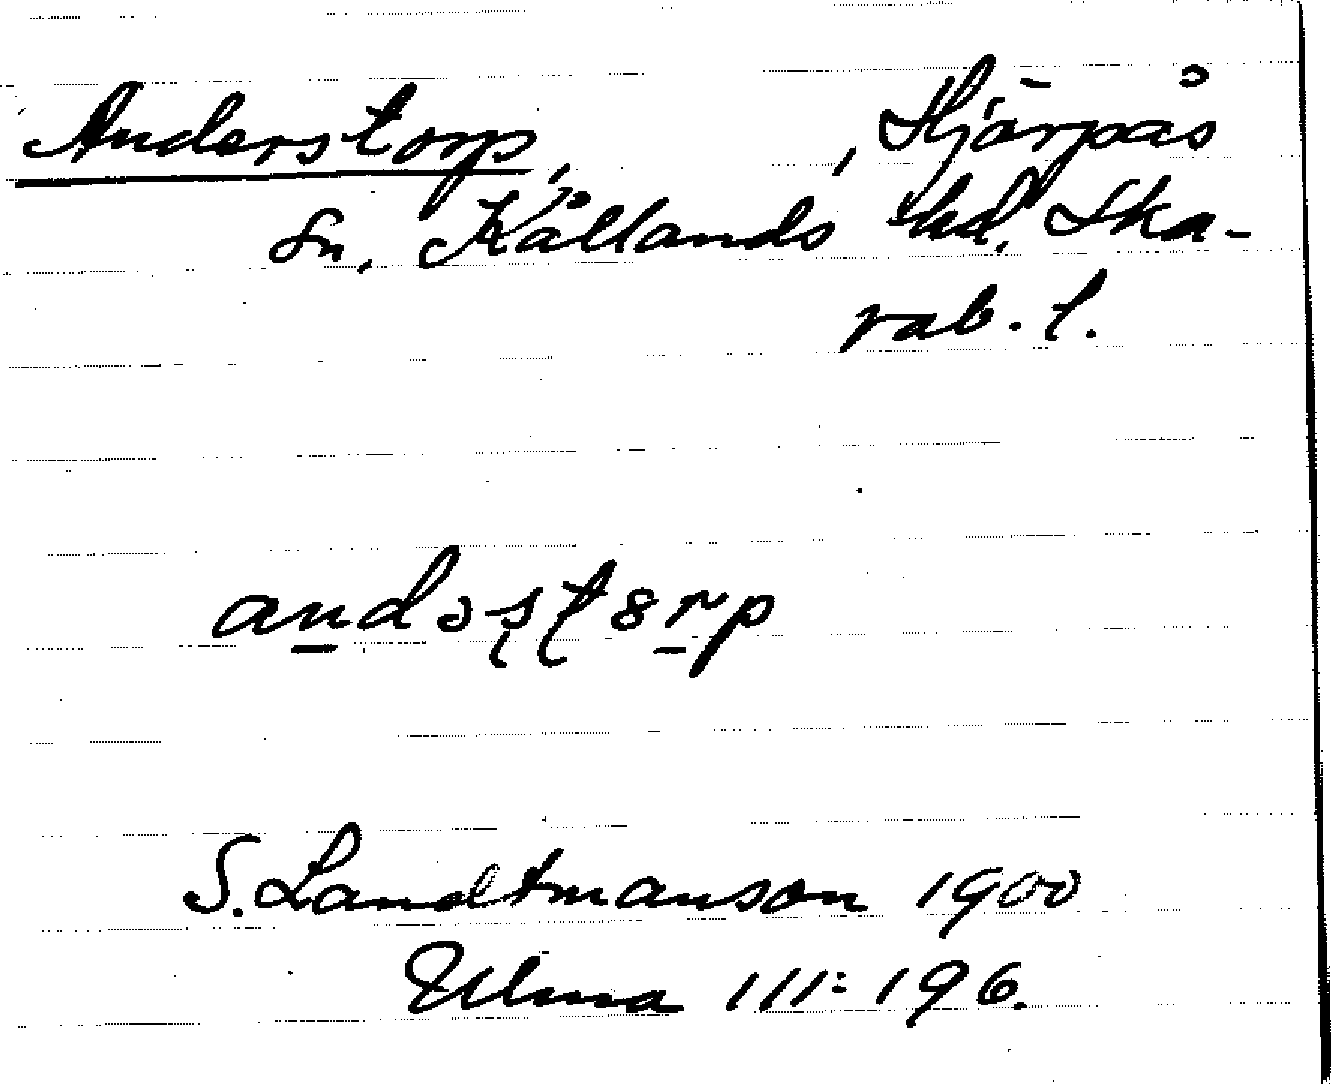 Anderstorp, , Hjärpås
sn, Kållands hd. Ska-
rab. l.
S. Landtmanson 1900
Ulma 111:196.